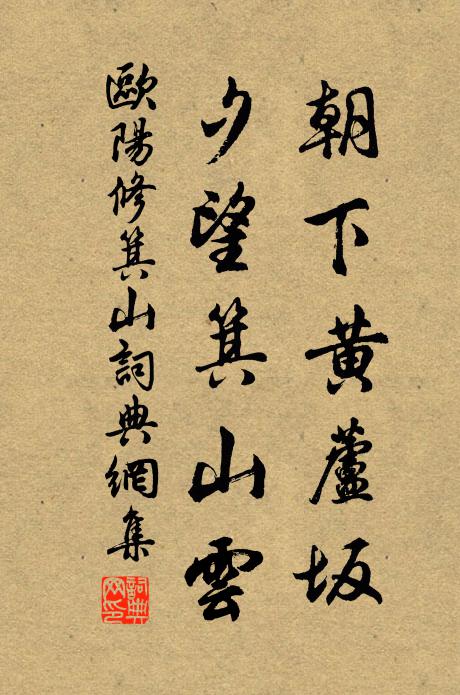 朝下黃蘆坂
夕望箕山雲
歐陽修箕山詞典網集
詞典网印